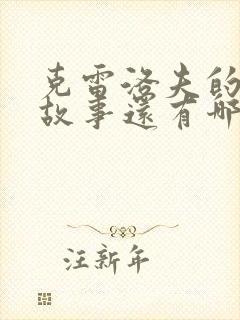 克雷洛夫的
故事還有哪
汪新年